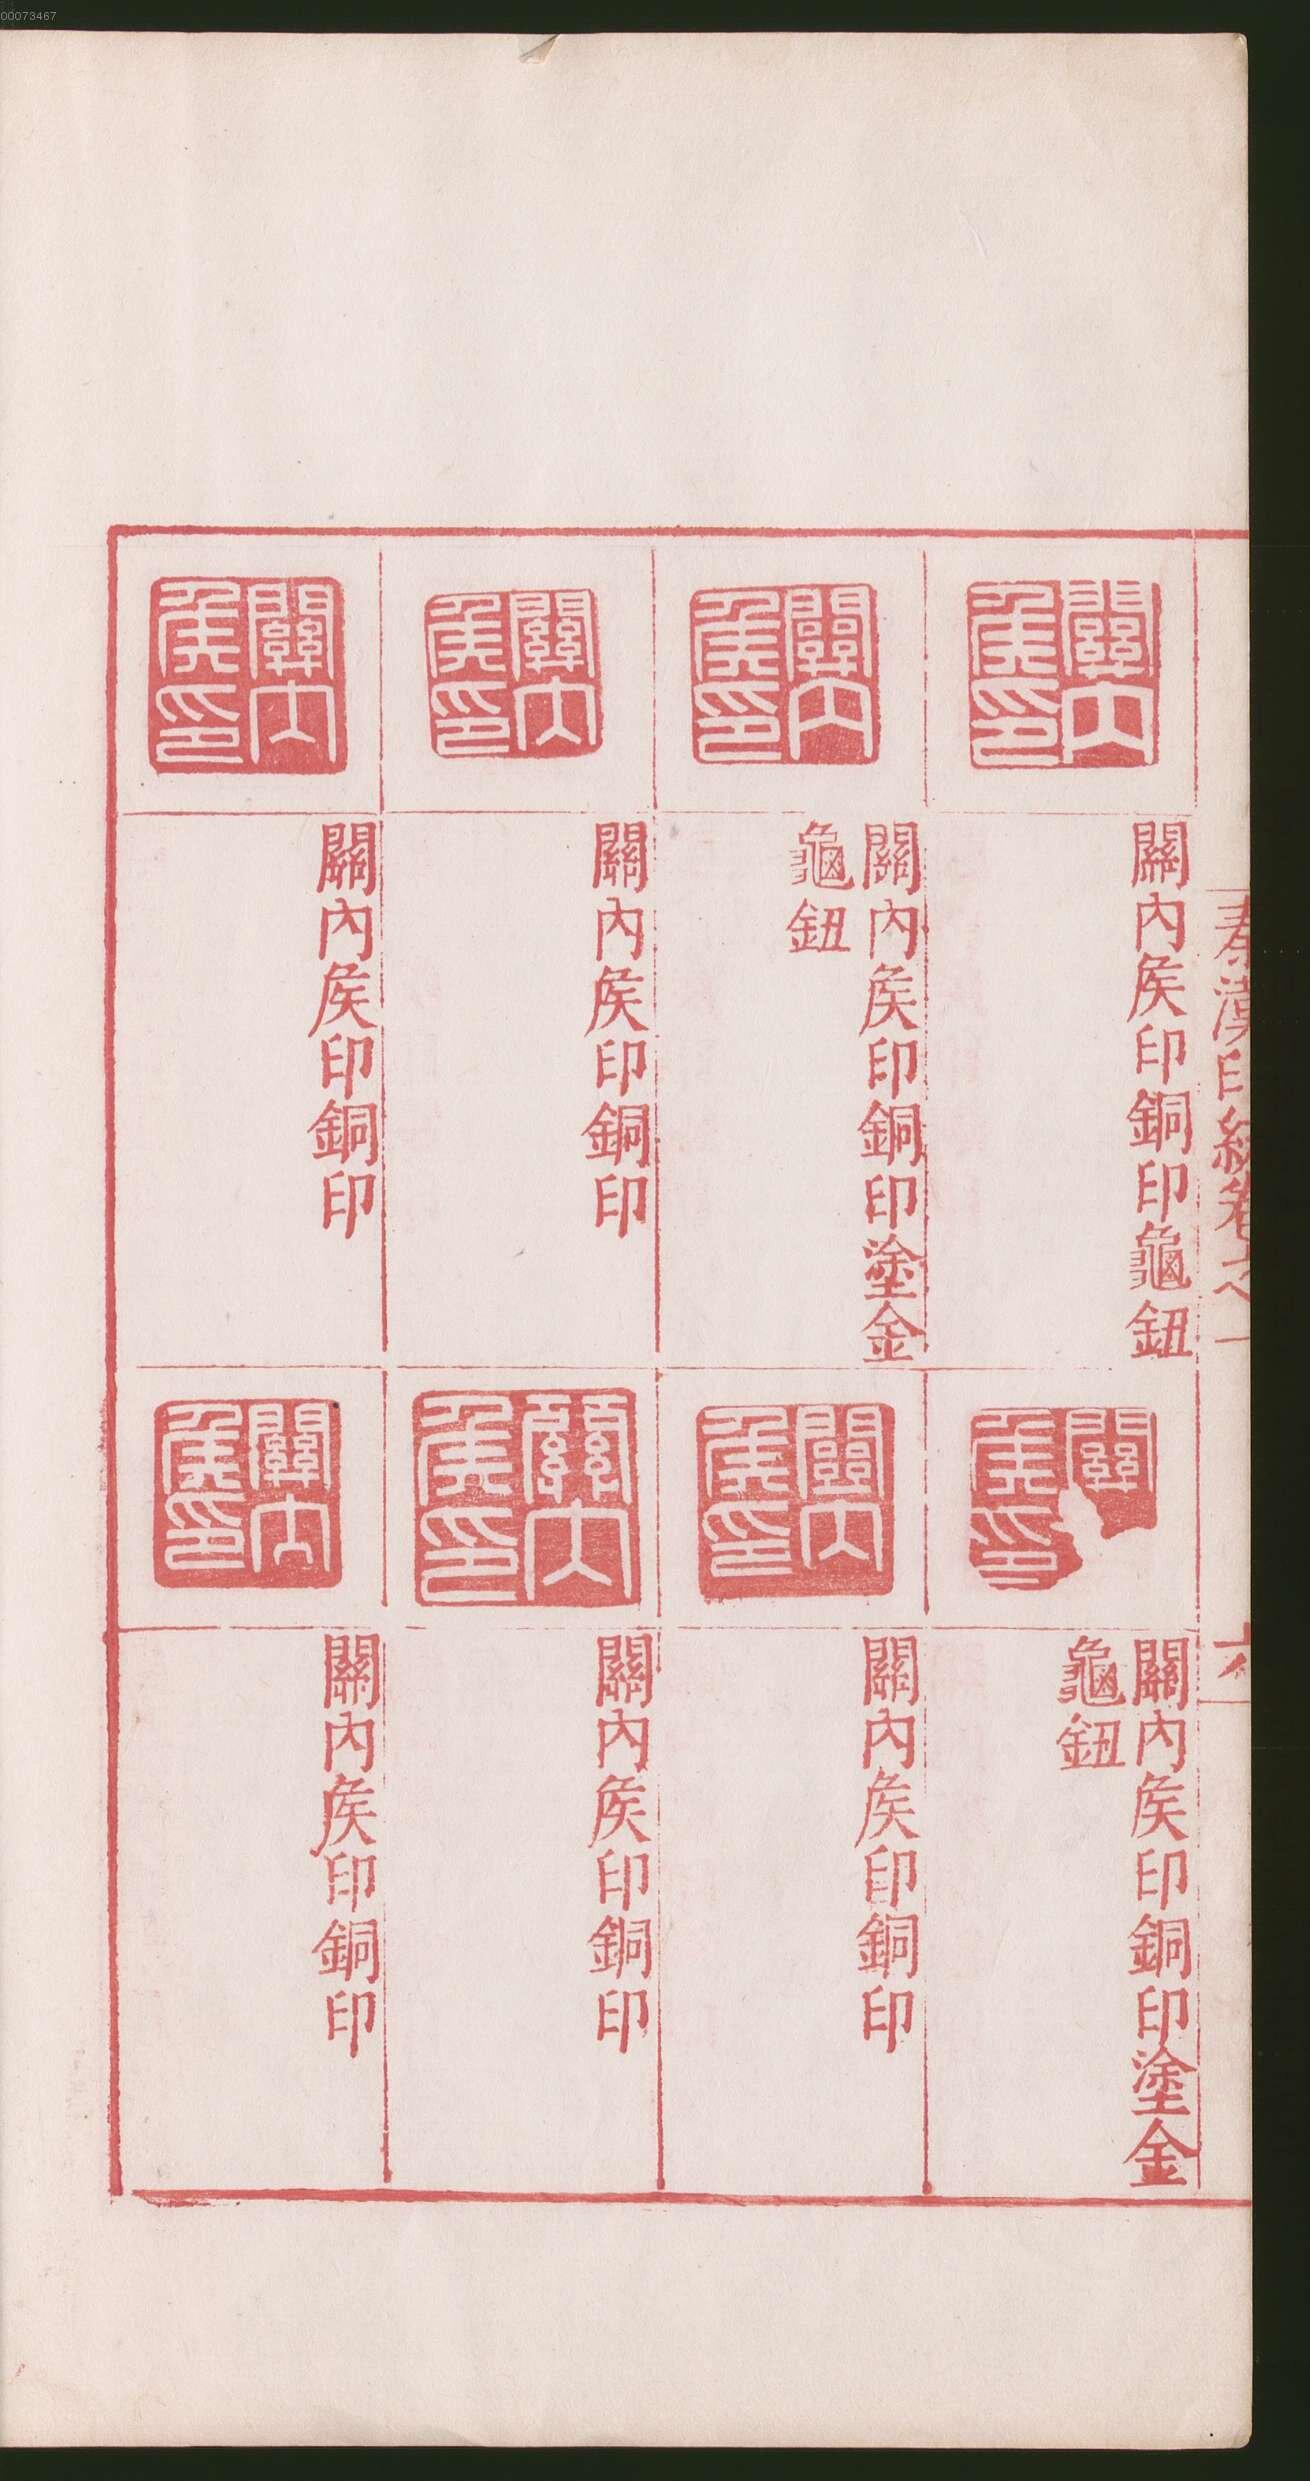 00073467
秦漢印統卷之一
六
關內侯印
關內矦印銅印龜鈕
關內侯印
關內矦印銅印塗金
龜鈕
關內侯印
關內矦印銅印
關內侯印
關內矦印銅印
關
侯印
關內矦印銅印塗金
龜鈕
關內侯印
關內矦印銅印
關內侯印
關內矦印銅印
關內侯印
關內矦印銅印